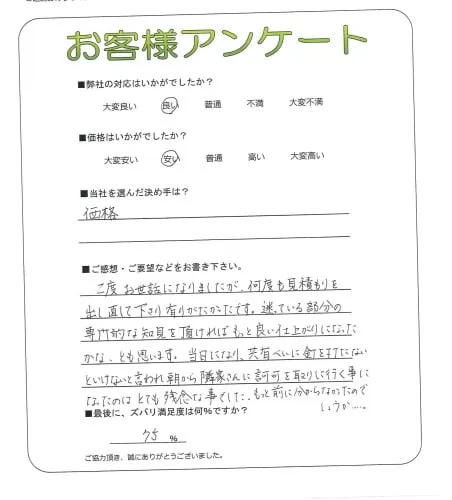 お客様アンケート
■弊社の対応はいかがでしたか？
大変良い 良い 普通 不満 大変不満
■価格はいかがでしたか？
大変安い 安い 普通 高い 大変高い
■当社を選んだ決め手は？
価格
■ご感想・ご要望などをお書き下さい。
2度お世話になりましたが、何度も見積もりを
出し直して下さり有りがたかったです。迷っている部分の
専門的な知見を頂ければもっと良い仕上がりになった
かな、とも思います。当日になり、共有べいに金を打たない
といけないと言われ朝から隣家さんに許可を取りに行く事に
なったのはとても残念な事でした、もっと前に分からなかったので
しょうか…。
■最後に、ズバリ満足度は何%ですか？
75 %
ご協力頂き、誠にありがとうございました。